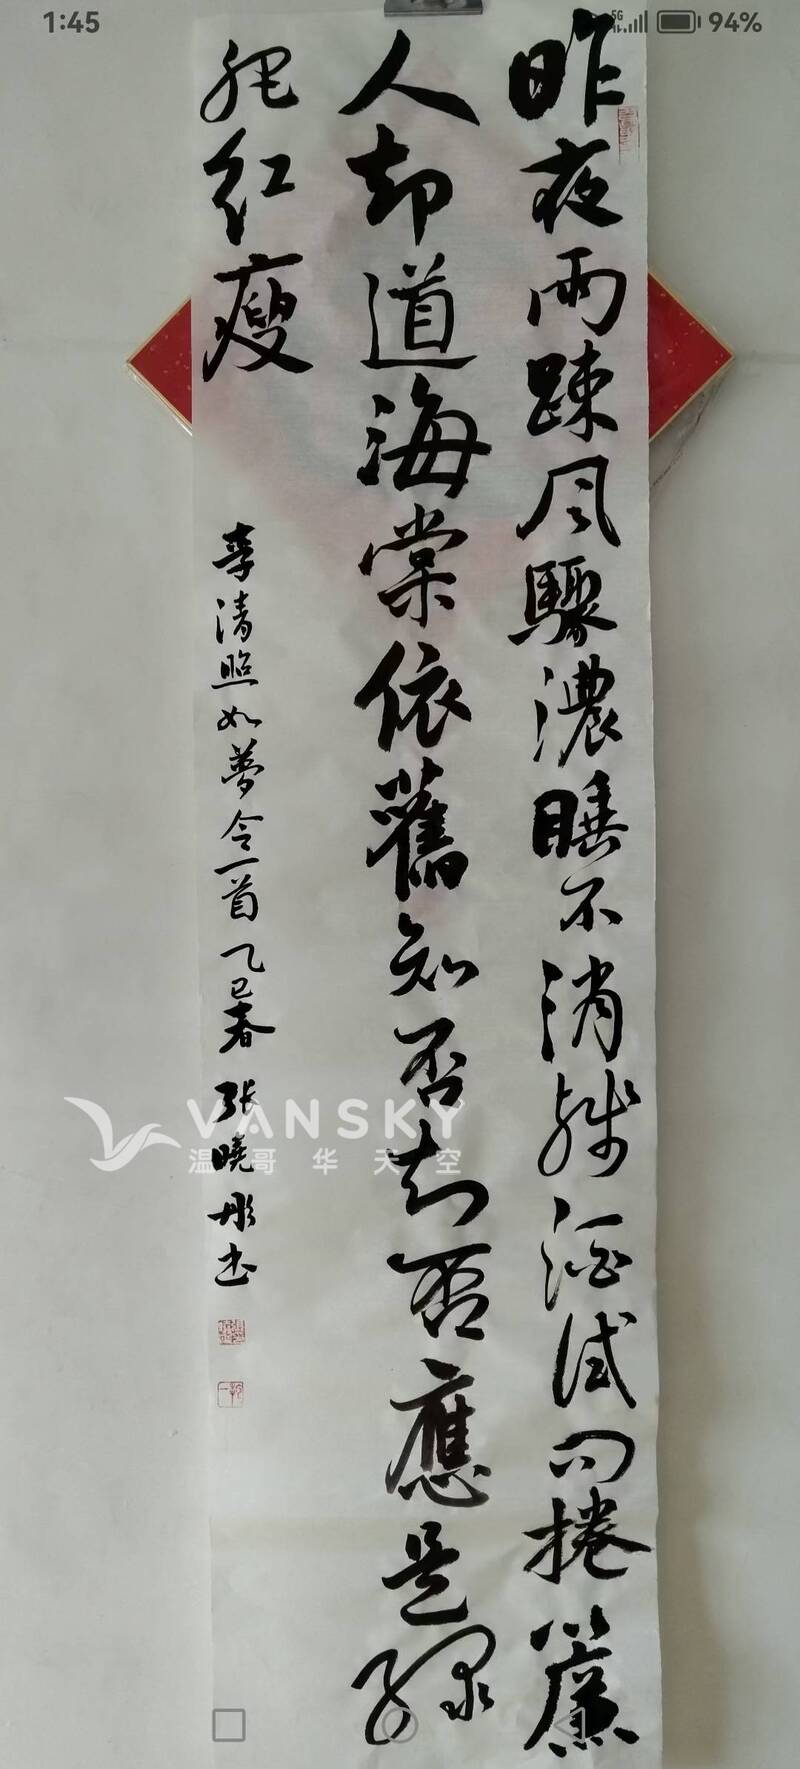 1:45
5G
94%
昨夜雨疎风驟濃睡不消殘酒试问捲簾
人却道海棠依舊知否知否應是绿
肥红瘦
李清照如夢令一首乙巳春張曉彤书
VANSKY
温哥华天空